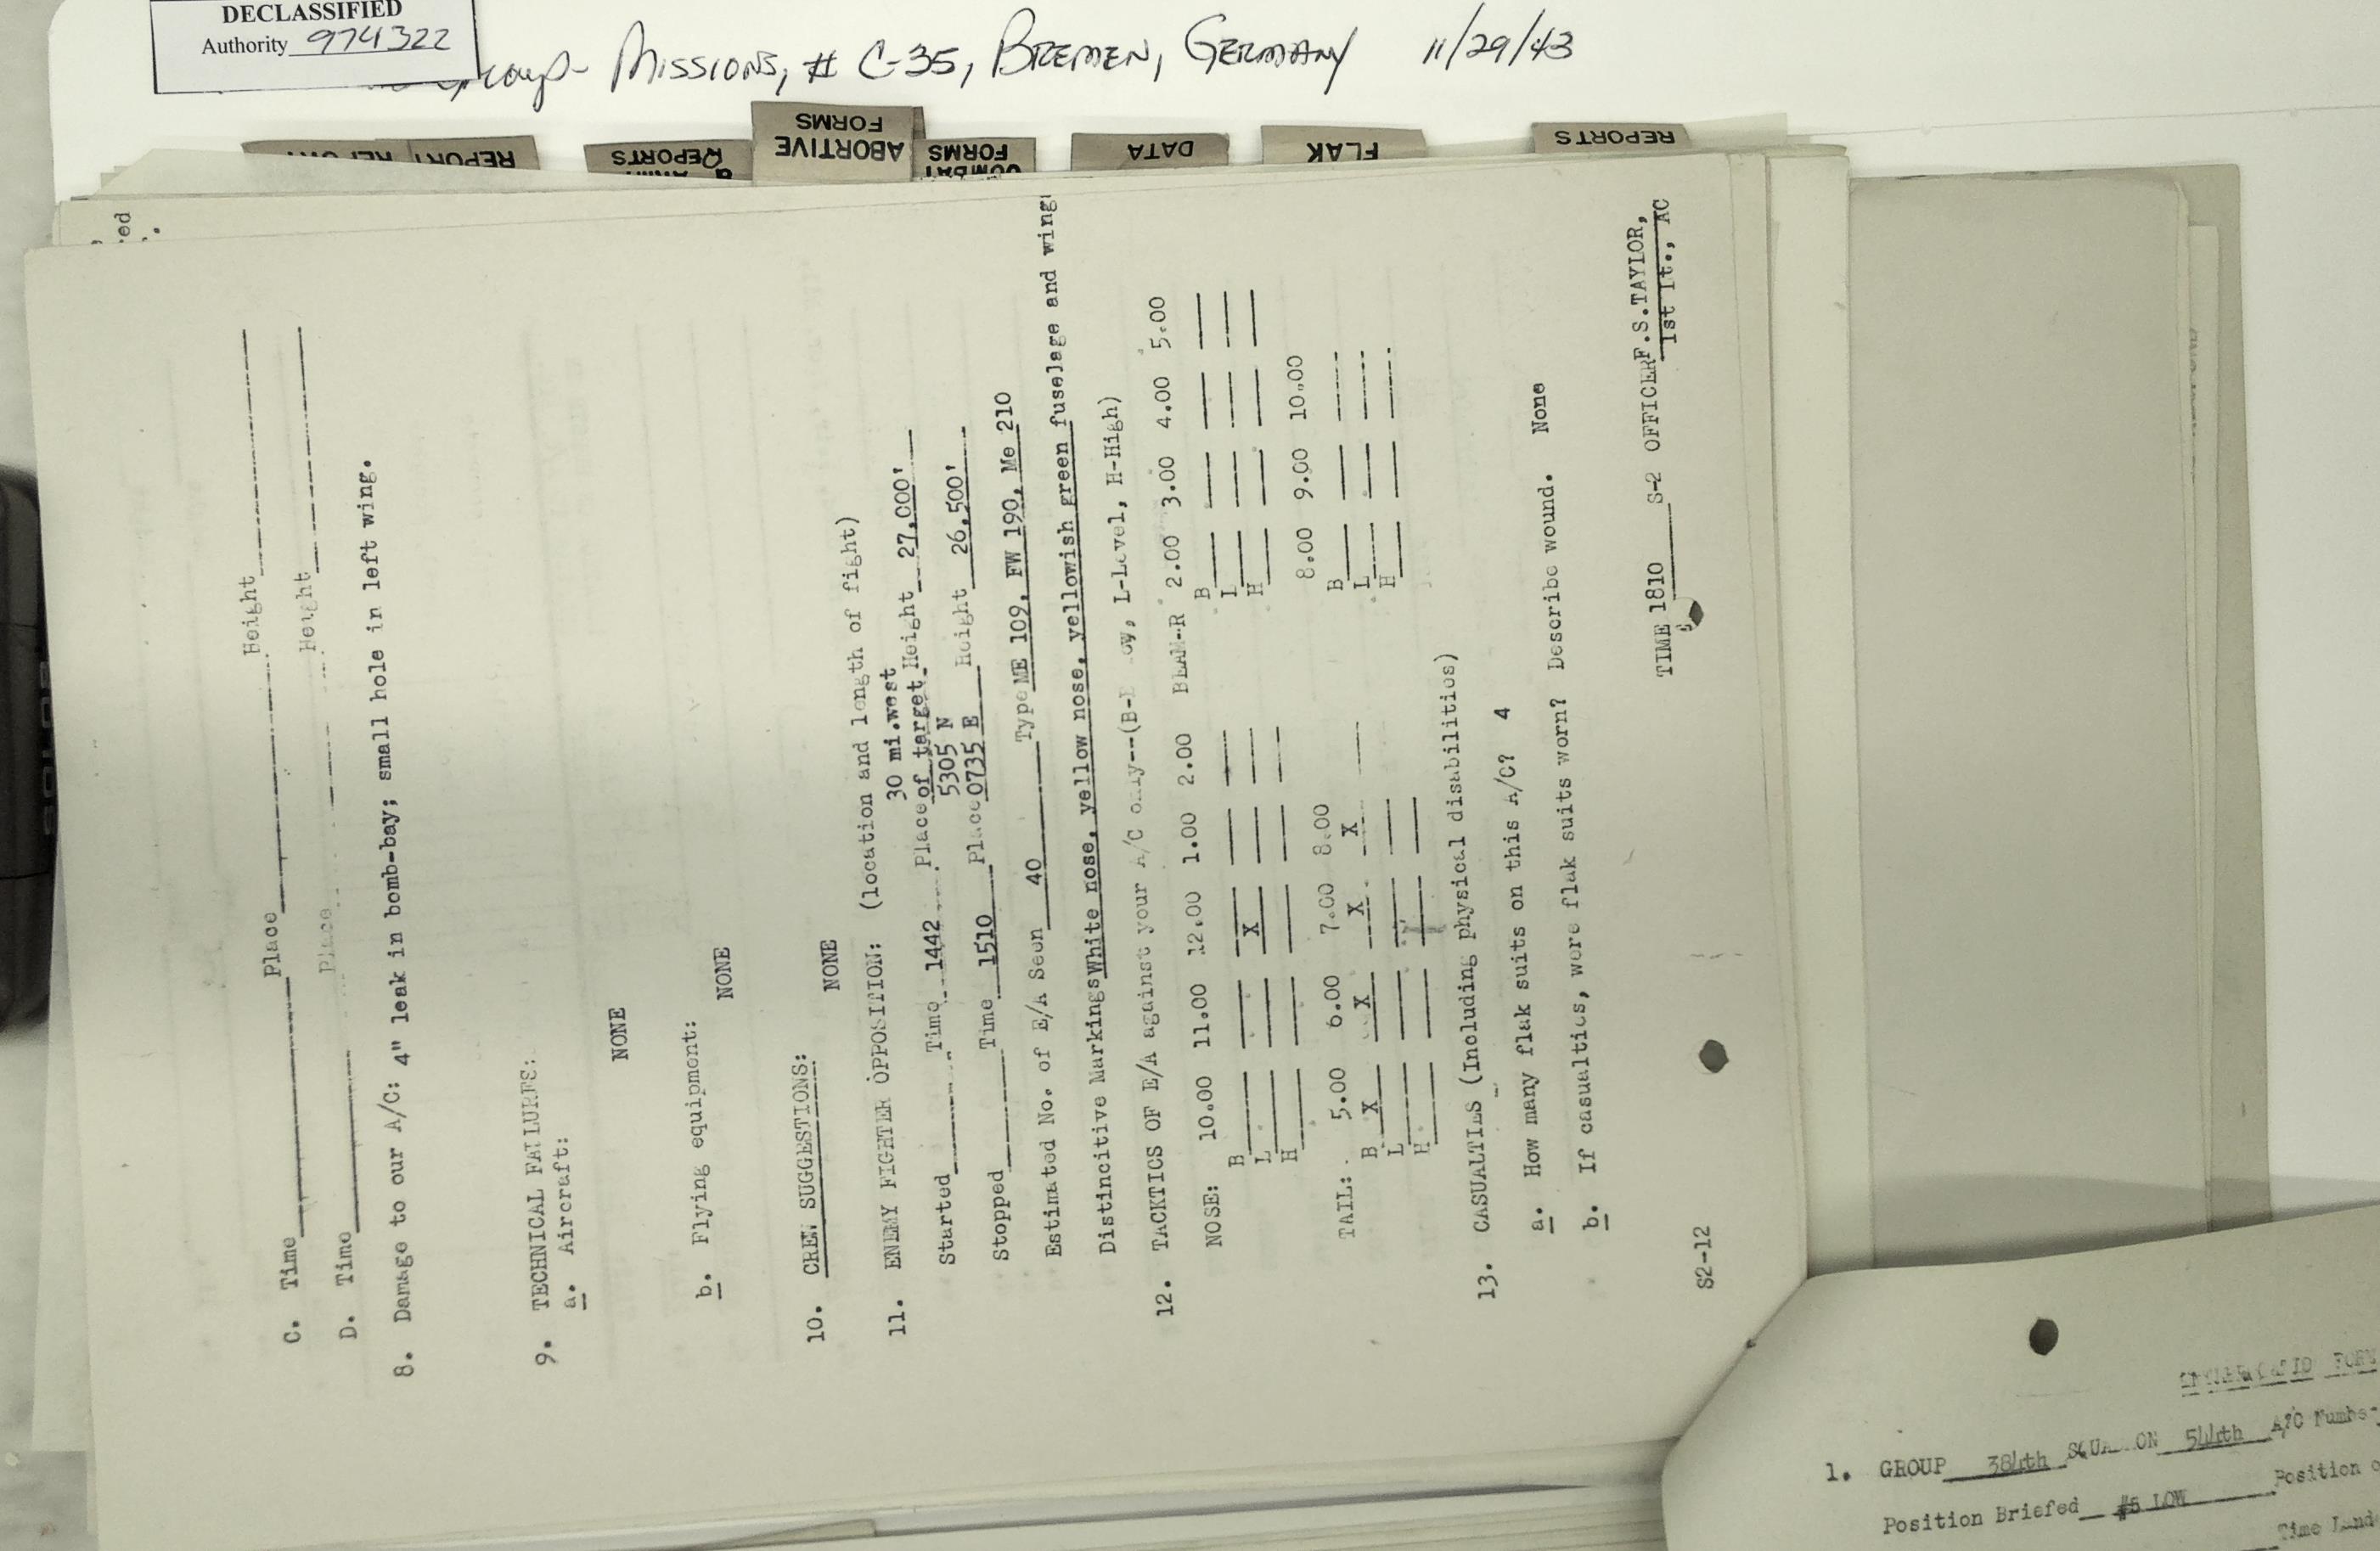 DECLASSIFIED
Authority 974322
Group- Missions, # C-35, Bremen, Germany 11/29/43
REPORT
REPORTS
ABORTIVE
FORMS
COMBAT
FORMS
DATA
FLAK
REPORTS
C. Time Place Height
D. Time Place Height
8. Damage to our A/C: 4" leak in bomb-bay; small hole in left wing.
9. TECHNICAL FAILURES:
a. Aircraft:
NONE
b. Flying equipment:
NONE
10. CREW SUGGESTIONS:
NONE
11. ENEMY FIGHTER OPPOSITION: (location and length of fight)
30 mi.west
Started Time 1442 Place of target Height 27,000'
5305 N
Stopped Time 1510 Place 0735 E Height 26,500'
Estimated No. of E/A Seen 40 Type ME 109, FW 190, Me 210
Distincitive Markings White nose, yellow nose, yellowish green fuselage and wing
12. TACKTICS OF E/A against your A/C only--(B-Low, L-Level, H-High)
NOSE: 10.00 11.00 12.00 1.00 2.00 BEAM-R 2.00 3.00 4.00 5.00
B B
L X L
H H
TAIL: 5.00 6.00 7.00 8.00 8.00 9.00 10.00
B X X X X B
L L
H H
13. CASUALTIES (Including physical disabilities)
a. How many flak suits on this A/C? 4
b. If casualties, were flak suits worn? Describe wound. None
TIME 1810 S-2 OFFICER F.S.TAYLOR,
1st Lt., AC
S2-12
1. GROUP 384th SQUADRON 544th A/C Number
Position Briefed #5 LOW Position
Time Land